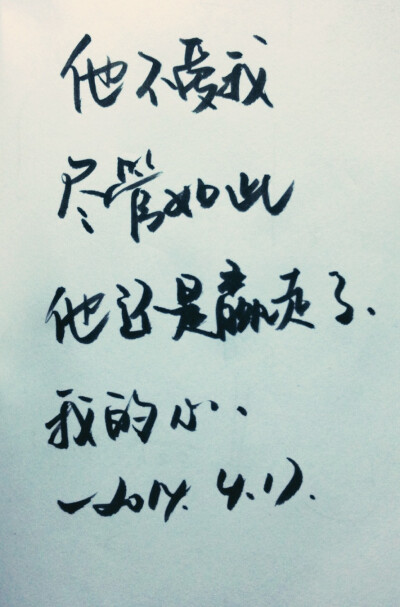 他不爱我
尽管如此
他还是赢走了.
我的心..
—2014.4.17.